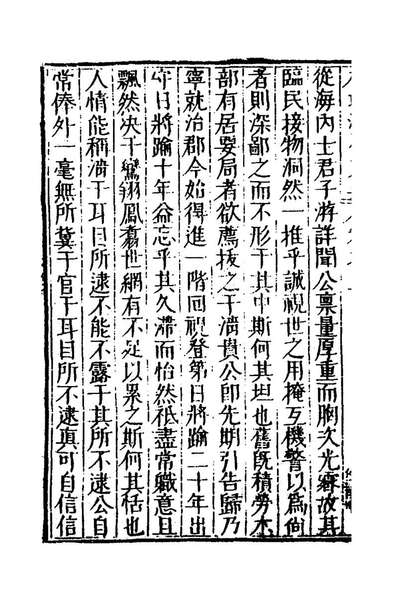 從海內士君子游詳聞公禀量厚重而胸次光霽故其
臨民接物洞然一推乎誠視世之用掩互機警以為尚
者則深鄙之而不形于其中斯何其坦也舊旣積勞本
部有居要局者欲薦拔之于清貴公卽先期引告歸乃
寧就治郡今始得進一階回視登第日將踰二十年出
守日將踰十年益忘乎其久滯而怡然祇盡常職意且
飄然決于鸞翔鳳翥世網有不足以累之斯何其恬也
人情能稱清于耳目所逮不能不露于其所不逮公自
常俸外一毫無所冀于官于耳目所不逮真可自信信